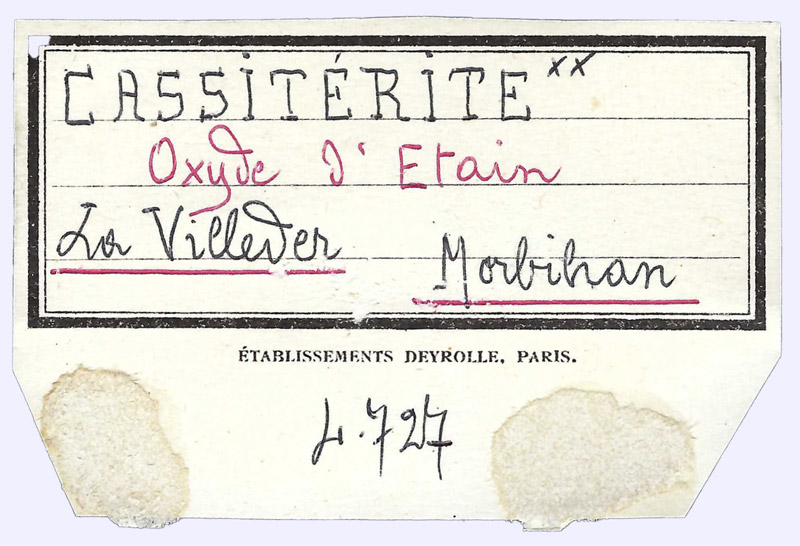 CASSİTÉRİTE xx
Oxyde d'Etain
La Villeder Morbihan
ÉTABLISSEMENTS DEYROLLE, PARIS.
L.727